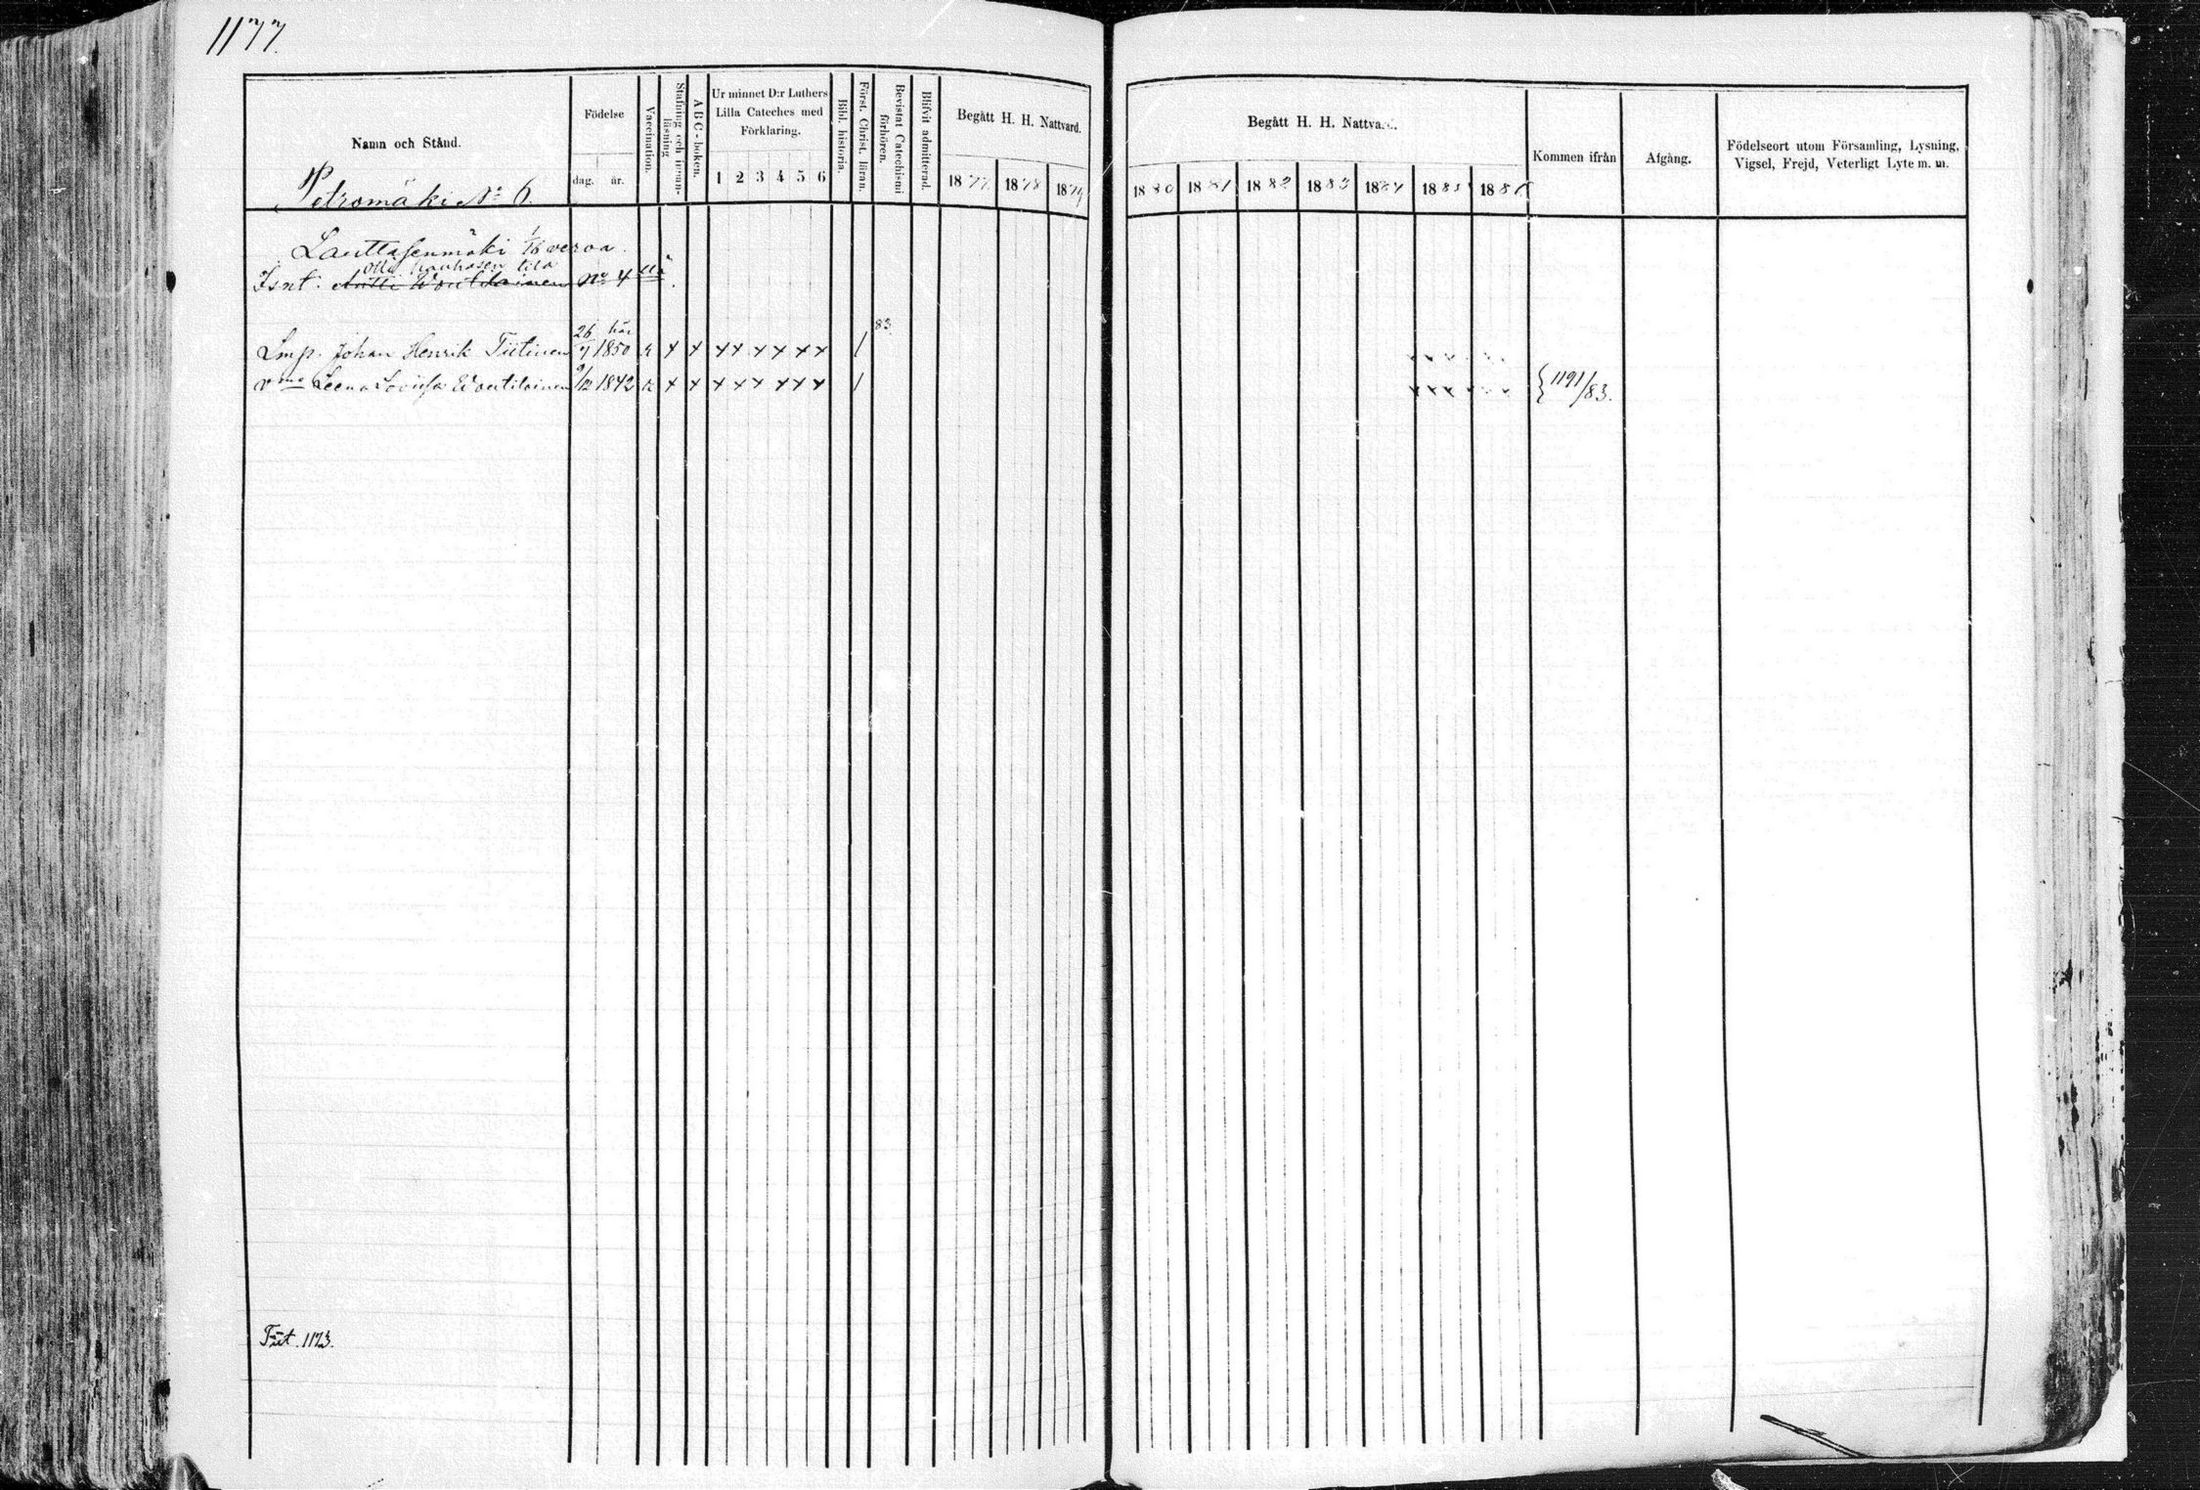 1177.
Namn och Stånd.
Petromäki No 6.
Födelse
dag. år.
Vaccination.
Stafning och innan-läsning
ABC-boken.
Ur minnet D:r Luthers
Lilla Cateches med
Förklaring.
1 2 3 4 5 6
Bibl. historia.
Först. Christ. läran.
Bevistat Catechismi förhören.
Blifvit admitterad.
Begått H. H. Nattvard.
1877. 1878 1879
Begått H. H. Nattvard.
1880 1881 1882 1883 1884 1885 1886
Kommen ifrån
Afgång.
Födelseort utom Församling, Lysning,
Vigsel, Frejd, Veterligt Lyte m. m.
Lauttasenmäki 1/16 veroa.
Olli tila
Isnt. Antti Woutilainen No 4
83
Lmp. Johan Henrik Tiitinen 26/7 1850 x x x x x x x x /
vmo Leena Lovisa Woutilainen 9/12 1842 x x x x x x x x /
{1191/83.
1173.